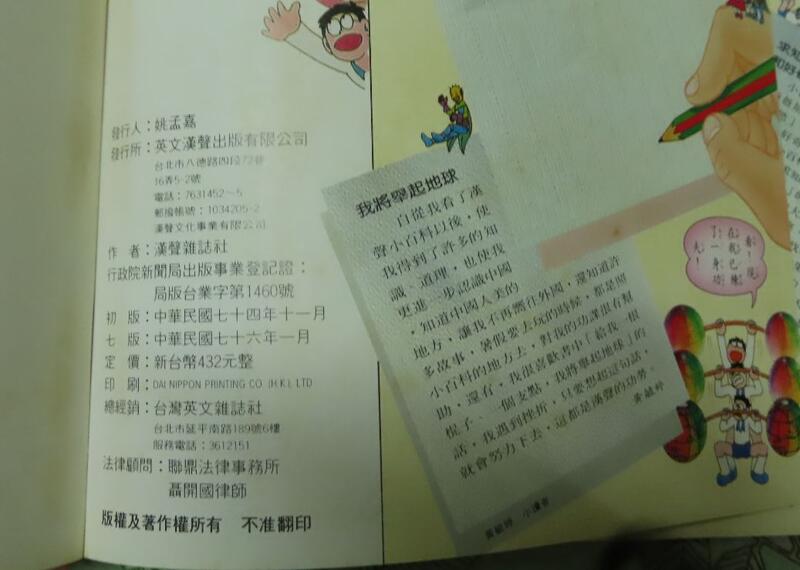 發行人：姚孟嘉
發行所：英文漢聲出版有限公司
台北市八德路四段72巷
16弄5-2號
電話：7631452～5
郵撥帳號：1034205-2
漢聲文化事業有限公司
作　者：漢聲雜誌社
行政院新聞局出版事業登記證：
局版台業字第1460號
初　版：中華民國七十四年十一月
七　版：中華民國七十六年一月
定　價：新台幣432元整
印　刷：DAI NIPPON PRINTING CO (H.K.), LTD
總經銷：台灣英文雜誌社
台北市延平南路189號6樓
服務電話：3612151
法律顧問：聯鼎法律事務所
聶開國律師
版權及著作權所有　不准翻印
我將舉起地球
自從我看了漢
聲小百科以後，使
我得到了許多的知
識、道理，也使我
更進一步認識中國
，知道中國人美的
地方，讓我不再嚮往外國，還知道許
多故事，暑假要去玩的時候，都是照
小百科的地方去，對我的功課很有幫
助，還有，我很喜歡書中「給我一根
棍子、一個支點，我將舉起地球」的
話，我遇到挫折，只要想起這句話，
就會努力下去，這都是漢聲的功勞。
黃毓婷
黃毓婷　小讀者
看！現
在我已練
了一身功
夫！
求知
和好